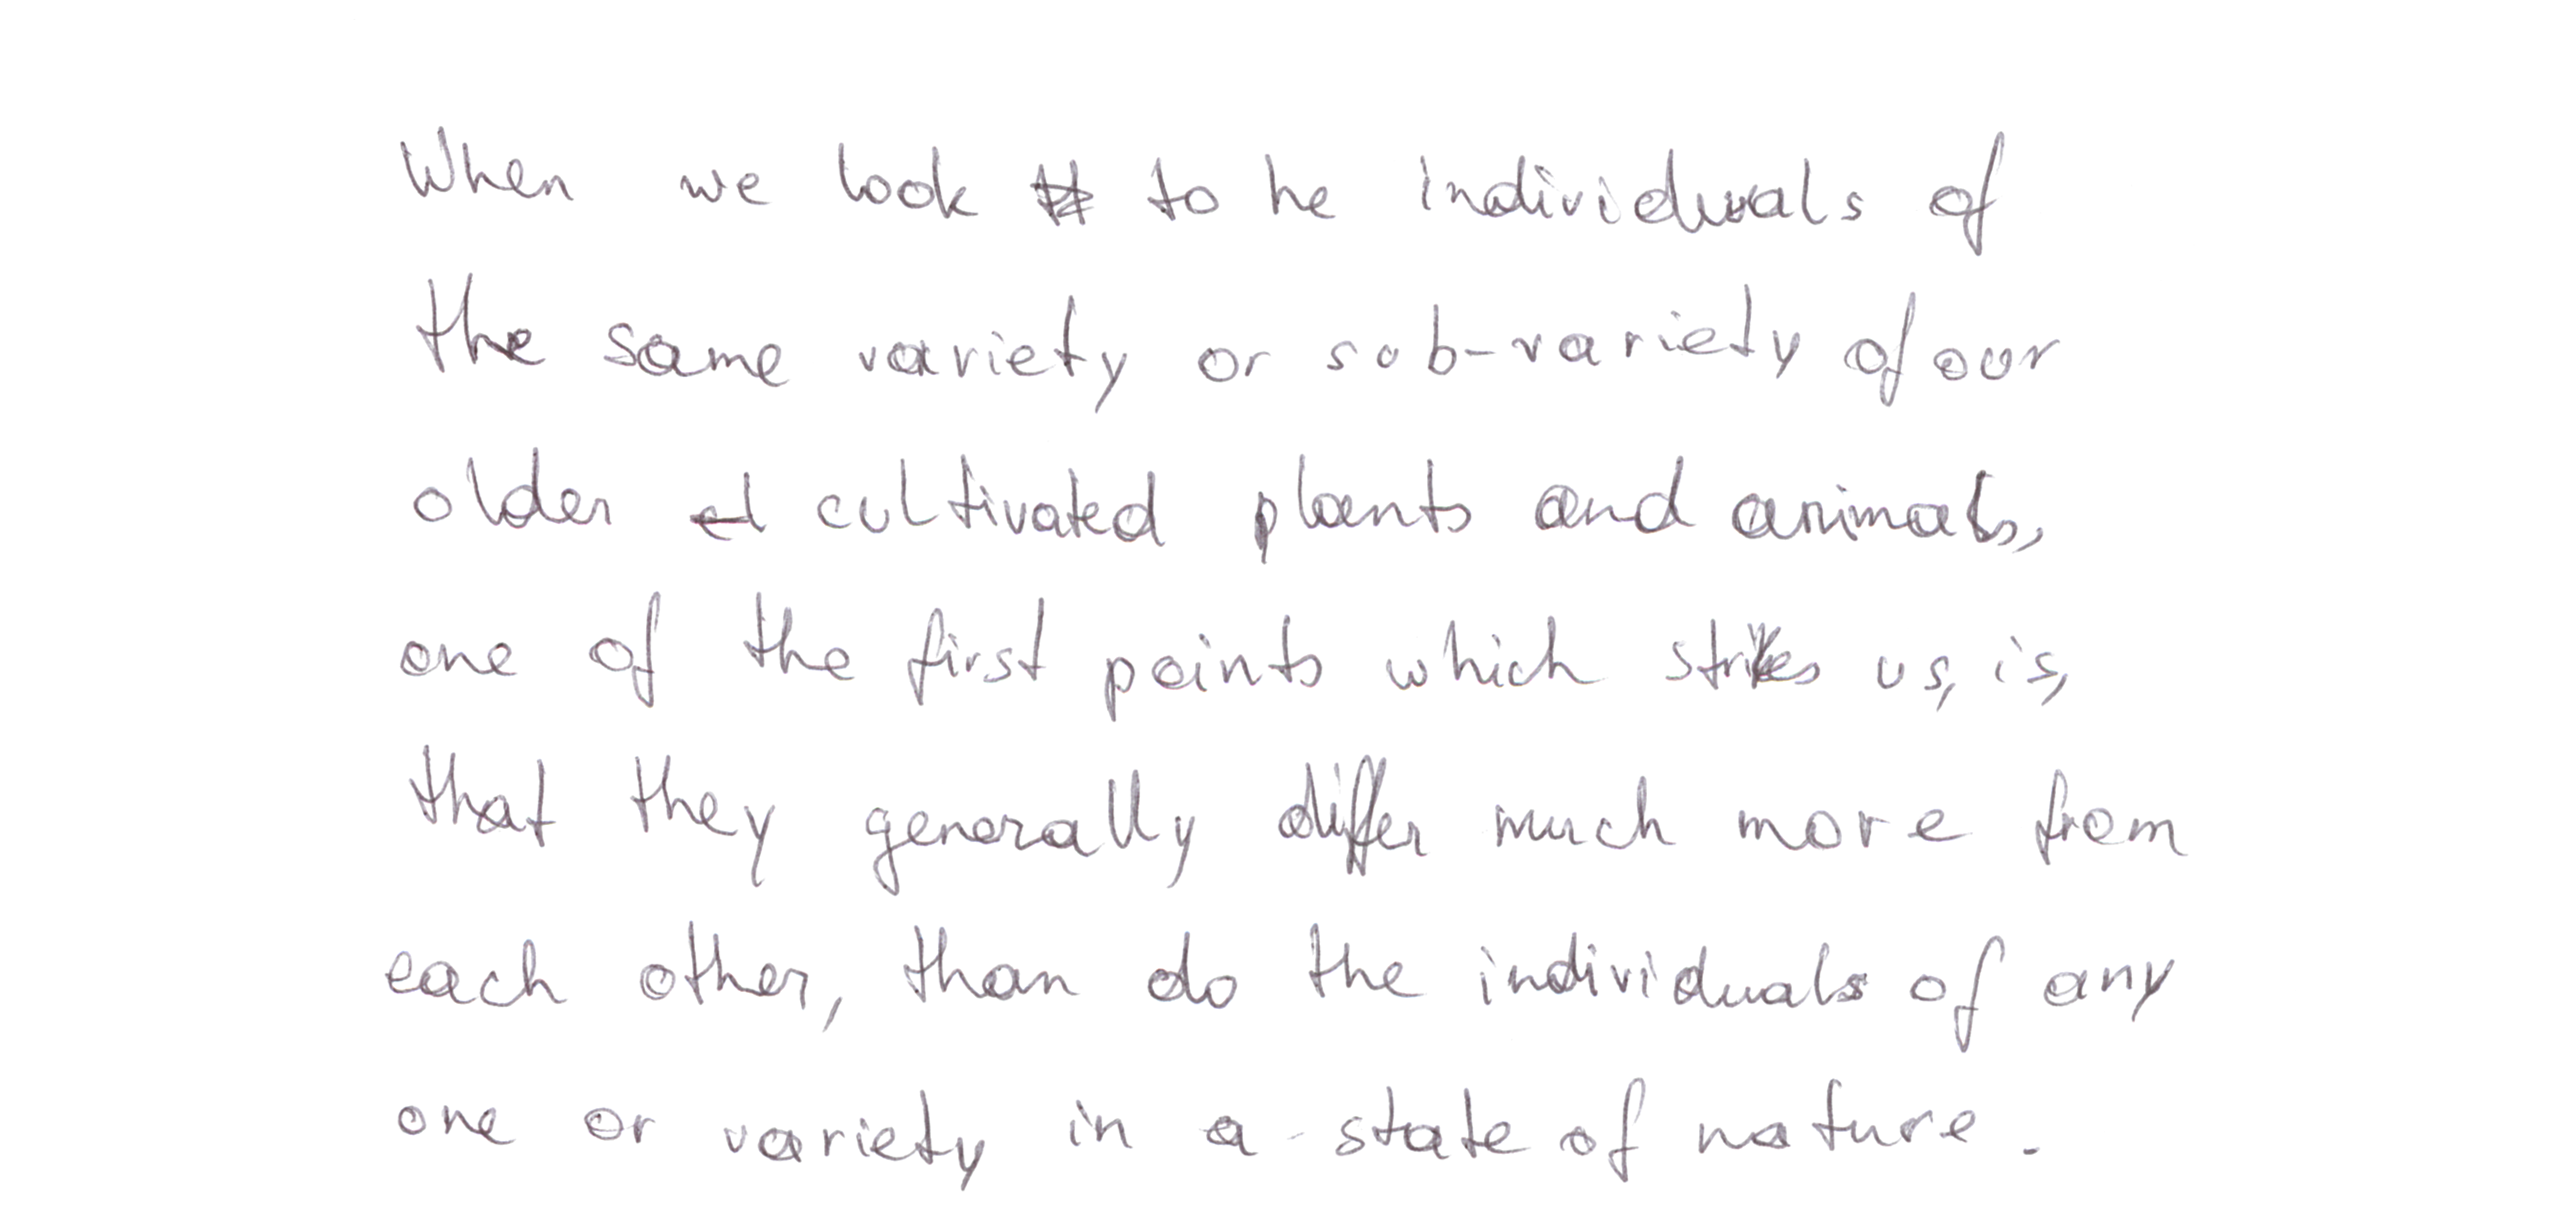 When we look to he individuals of
the same variety or sub-variety of our
older cultivated plants and animals,
one of the first points which strikes us, is,
that they generally differ much more from
each other, than do the individuals of any
one or variety in a state of nature.